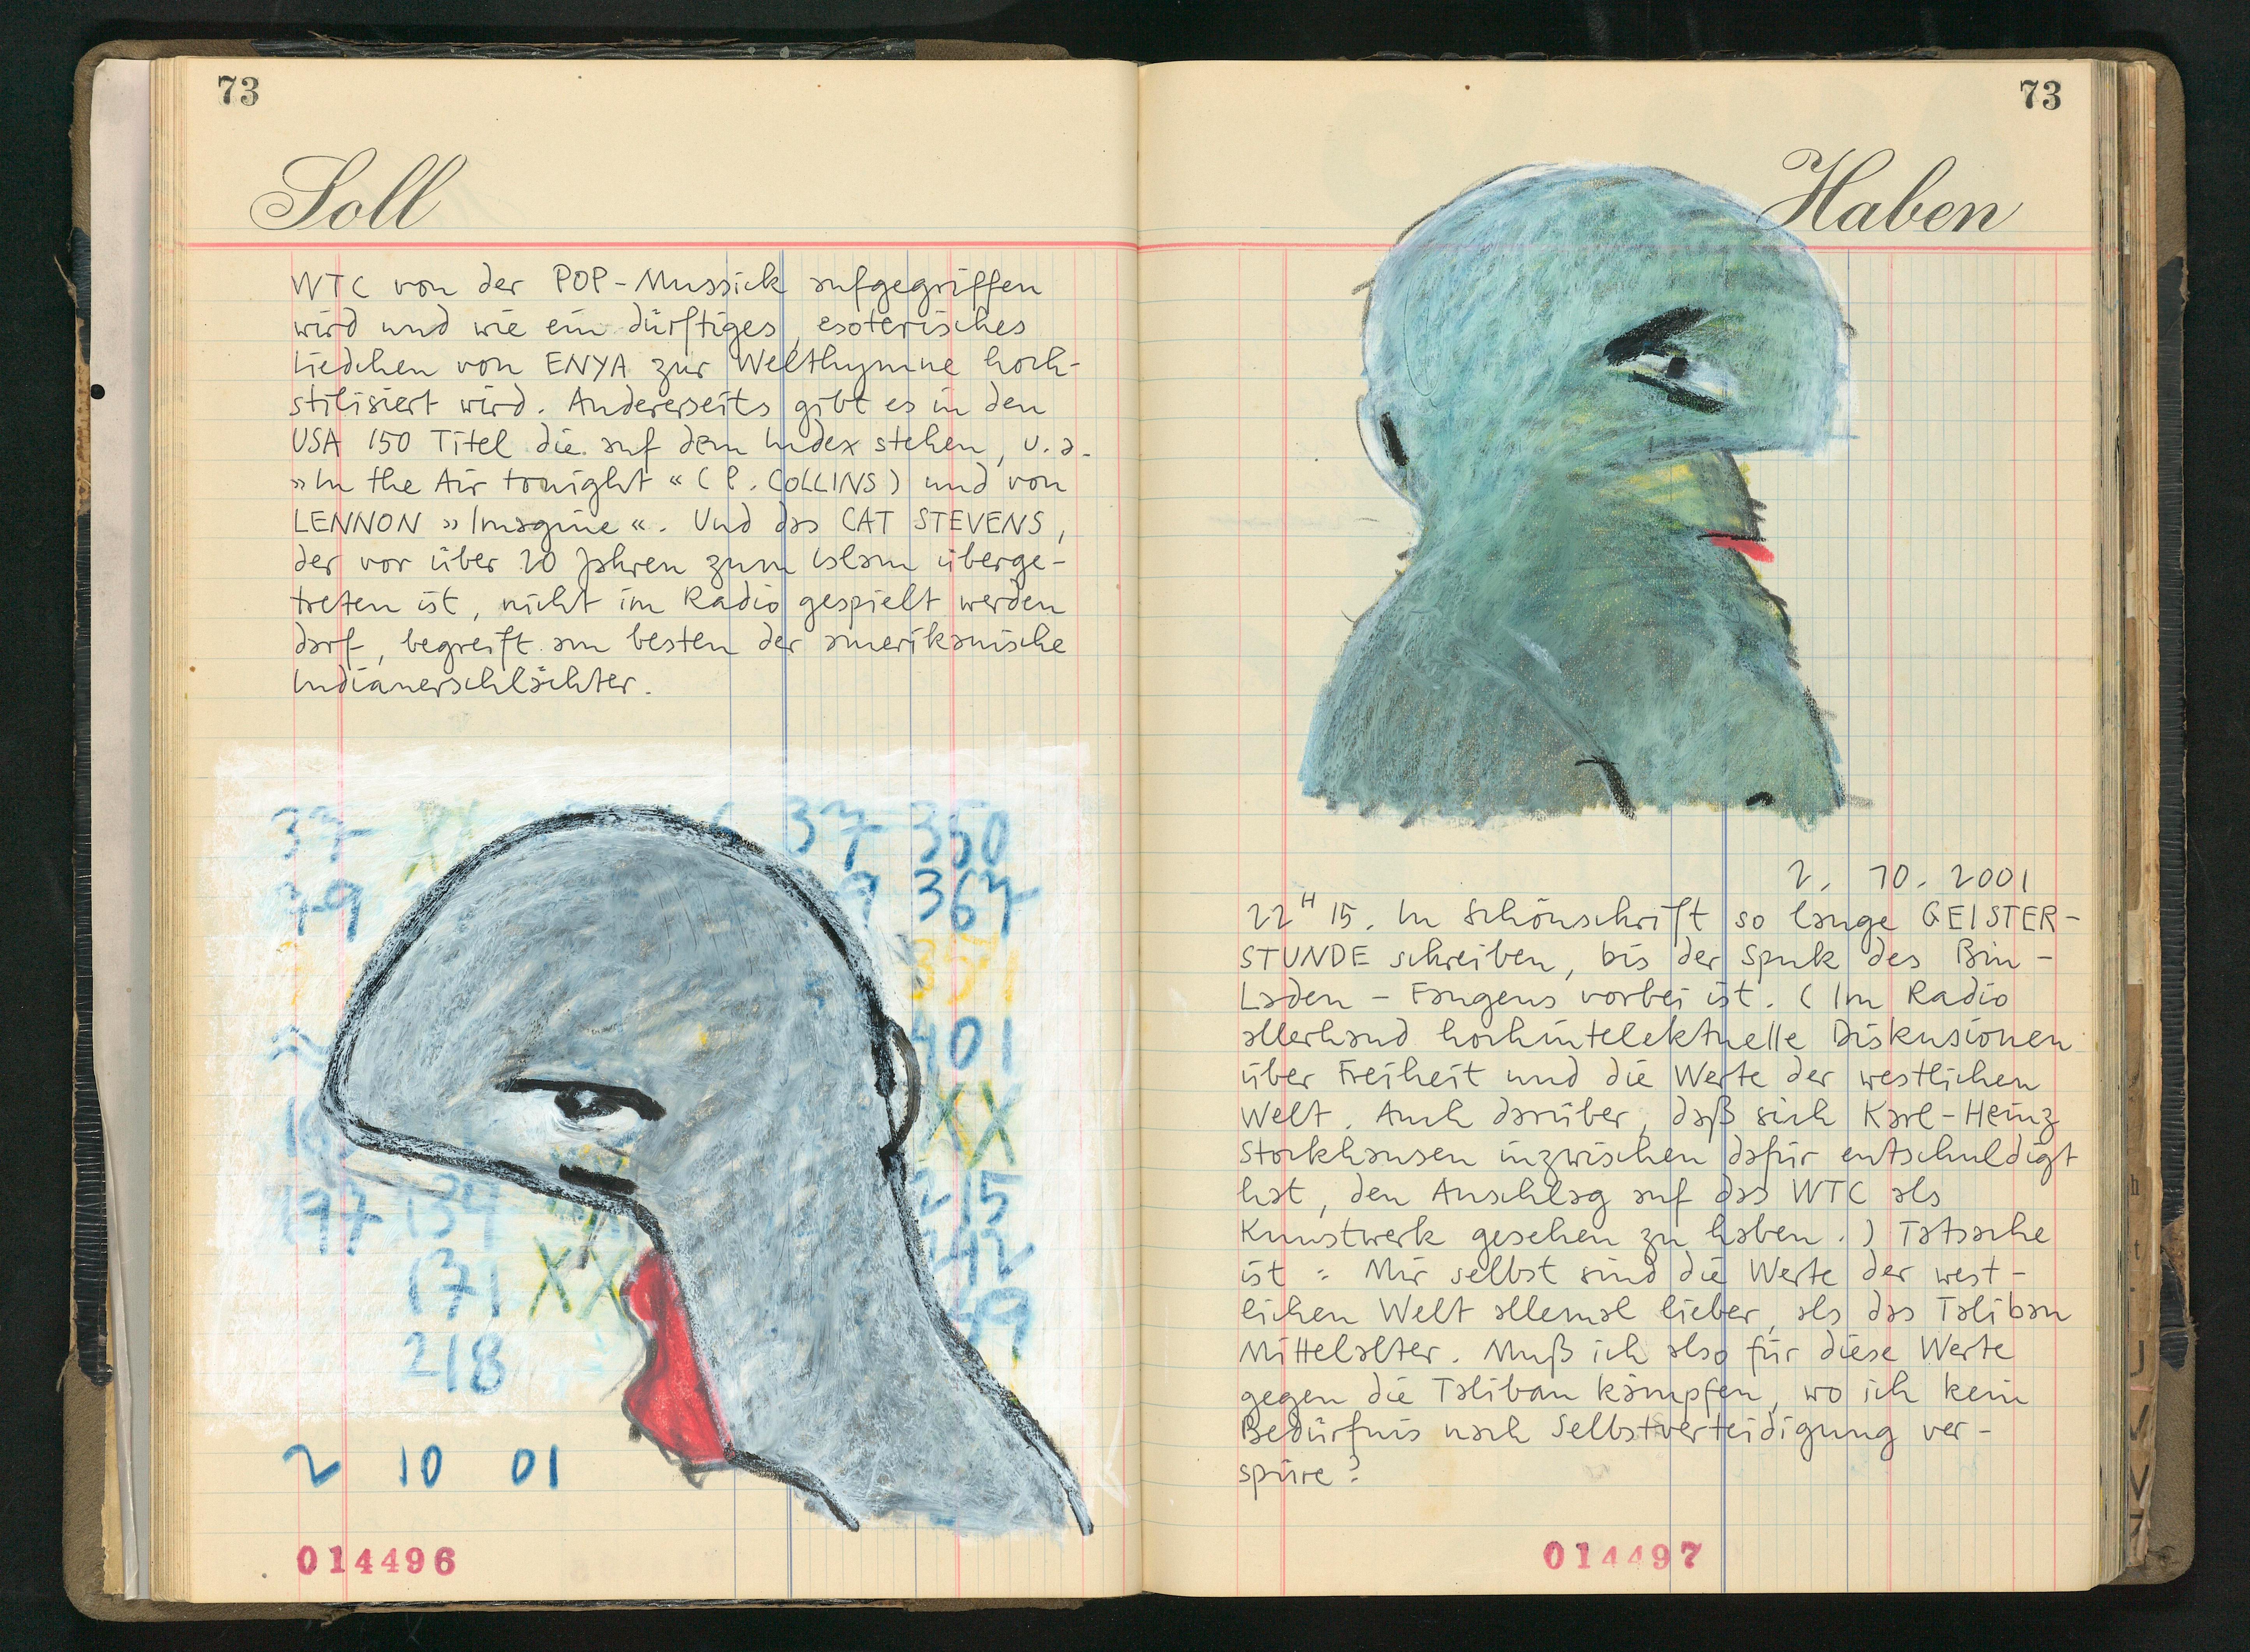 73
Soll
WTC von der POP-Mussick aufgegriffen
wird und wie ein dürftiges, esoterisches
Liedchen von ENYA zur Welthymne hoch-
stilisiert wird. Andererseits gibt es in den
USA 150 Titel die auf dem Index stehen, u.a.
»In the Air tonight« (P. COLLINS) und von
LENNON »Imagine«. Und das CAT STEVENS,
der vor über 20 Jahren zum Islam überge-
treten ist, nicht im Radio gespielt werden
darf, begreift am besten der amerikanische
Indianerschlächter.
37 XX 37 350
79 367
351
401
XX
197 134 215
171 XX
218
2 10 01
014496
73
Haben
2. 10. 2001
22H15. In Schönschrift so lange GEISTER-
STUNDE schreiben, bis der Spuk des Bin-
Laden-Fangens vorbei ist. (Im Radio
allerhand hochintelektuelle Diskusionen
über Freiheit und die Werte der westlichen
Welt. Auch darüber, daß sich Karl-Heinz
Stockhausen inzwischen dafür entschuldigt
hat, den Anschlag auf das WTC als
Kunstwerk gesehen zu haben.) Tatsache
ist: Mir selbst sind die Werte der west-
lichen Welt allemal lieber, als das Taliban
Mittelalter. Muß ich also für diese Werte
gegen die Taliban kämpfen, wo ich kein
Bedürfnis nach Selbstverteidigung ver-
spüre?
014497